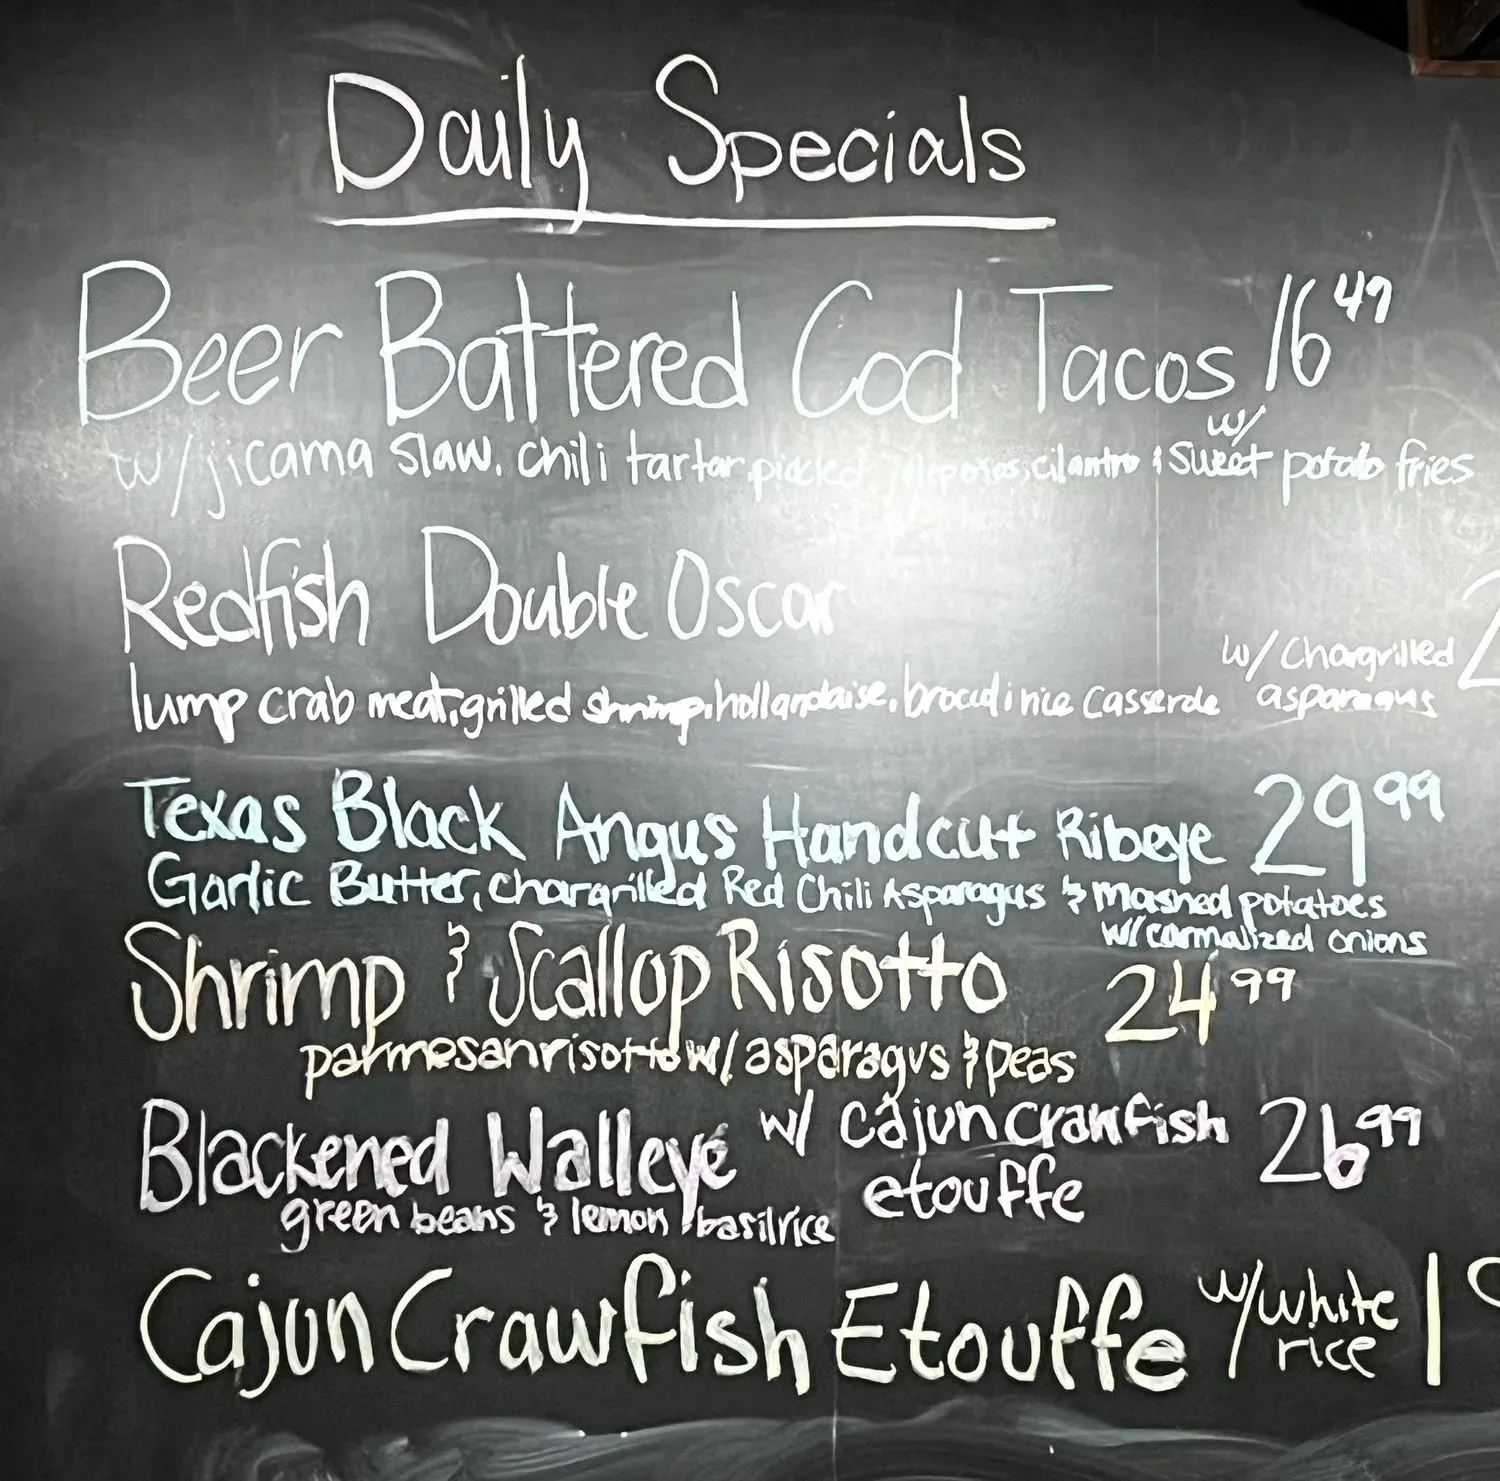 Daily Specials
Beer Battered Cod Tacos 16 49
w/
w/jicama slaw, chili tartar, pickled jalepenos, cilantro & sweet potato fries
Redfish Double Oscar
w/ chargrilled
lump crab meat, grilled shrimp, hollandaise, rice casserole asparagus
Texas Black Angus Handcut Ribeye 29 99
Garlic Butter, chargrilled Red Chili Asparagus & mashed potatoes
w/ carmalized onions
Shrimp & Scallop Risotto 24 99
parmesan risotto w/ asparagus & peas
Blackened Walleye w/ cajun crawfish 26 99
etouffe
green beans & lemon basil rice
Cajun Crawfish Etouffe w/ white
rice